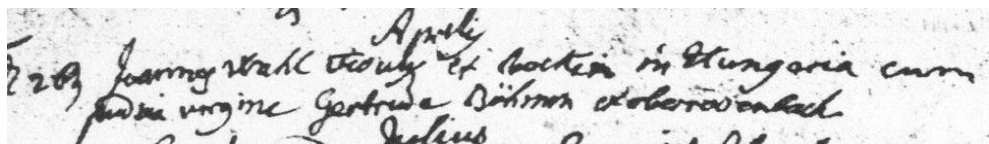 Aprilis
28 Joannes Stahl viduus ex Boctein in Hungaria cum
pudica virgine Gertrude Böhmin ex oberrodenbach
Julius